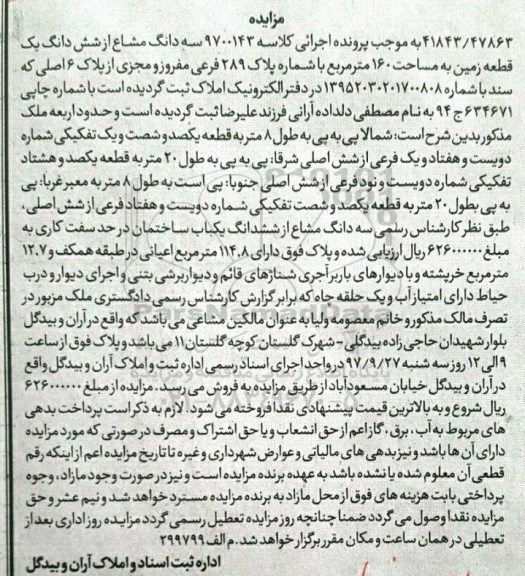 مزایده
۴۱۸۴۳/۴۷۸۶۳ به موجب پرونده اجرائی کلاسه ۹۷۰۰۱۴۳ سه دانگ مشاع از شش دانگ یک
قطعه زمین به مساحت ۱۶۰ مترمربع با شماره پلاک ۲۸۹ فرعی مفروز و مجزی از پلاک ۶ اصلی که
سند با شماره ۱۳۹۵۲۰۳۰۲۰۱۷۰۰۸۰۸ در دفتر الکترونیک املاک ثبت گردیده است با شماره چاپی
۶۳۴۶۷۱ ج ۹۴ به نام مصطفی دلداده آرانی فرزند علیرضا ثبت گردیده است و حدود اربعه ملک
مذکور بدین شرح است: شمالا پی به پی به طول ۸ متر به قطعه یکصد و شصت و یک تفکیکی شماره
دویست و هفتاد و یک فرعی از شش اصلی شرقا: پی به پی به طول ۲۰ متر به قطعه یکصد و هشتاد
تفکیکی شماره دویست و نود فرعی از شش اصلی جنوبا: پی است به طول ۸ متر به معبر غربا: پی
به پی بطول ۲۰ متر به قطعه یکصد و شصت تفکیکی شماره دویست و هفتاد فرعی از شش اصلی،
طبق نظر کارشناس رسمی سه دانگ مشاع از ششدانگ یکباب ساختمان در حد سفت کاری به
مبلغ ۶۲۶۰۰۰۰۰۰ ریال ارزیابی شده و پلاک فوق دارای ۱۱۴.۸ مترمربع اعیانی در طبقه همکف و ۱۲.۷
مترمربع خرپشته و با دیوارهای باربر آجری شناژهای قائم و دیوار برشی بتنی و اجرای دیوار و درب
حیاط دارای امتیاز آب و یک حلقه چاه که برابر گزارش کارشناس رسمی دادگستری ملک مزبور در
تصرف مالک مذکور و خانم معصومه ولیا به عنوان مالکین مشاعی می باشد که واقع در آران و بیدگل
بلوار شهیدان حاجی زاده بیدگلی - شهرک گلستان کوچه گلستان ۱۱ می باشد و پلاک فوق از ساعت
۹ الی ۱۲ روز سه شنبه ۹۷/۹/۲۷ در واحد اجرای اسناد رسمی اداره ثبت و املاک آران و بیدگل واقع
در آران و بیدگل خیابان مسعودآباد از طریق مزایده به فروش می رسد. مزایده از مبلغ ۶۲۶۰۰۰۰۰۰
ریال شروع و به بالاترین قیمت پیشنهادی نقدا فروخته می شود. لازم به ذکر است پرداخت بدهی
های مربوط به آب، برق، گاز اعم از حق انشعاب و یا حق اشتراک و مصرف در صورتی که مورد مزایده
دارای آن ها باشد و نیز بدهی های مالیاتی و عوارض شهرداری و غیره تا تاریخ مزایده اعم از اینکه رقم
قطعی آن معلوم شده یا نشده باشد به عهده برنده مزایده است و نیز در صورت وجود مازاد، وجوه
پرداختی بابت هزینه های فوق از محل مازاد به برنده مزایده مسترد خواهد شد و نیم عشر و حق
مزایده نقدا وصول می گردد ضمنا چنانچه روز مزایده تعطیل رسمی گردد مزایده روز اداری بعد از
تعطیلی در همان ساعت و مکان مقرر برگزار خواهد شد. م الف ۲۹۹۷۹۹
اداره ثبت اسناد و املاک آران و بیدگل